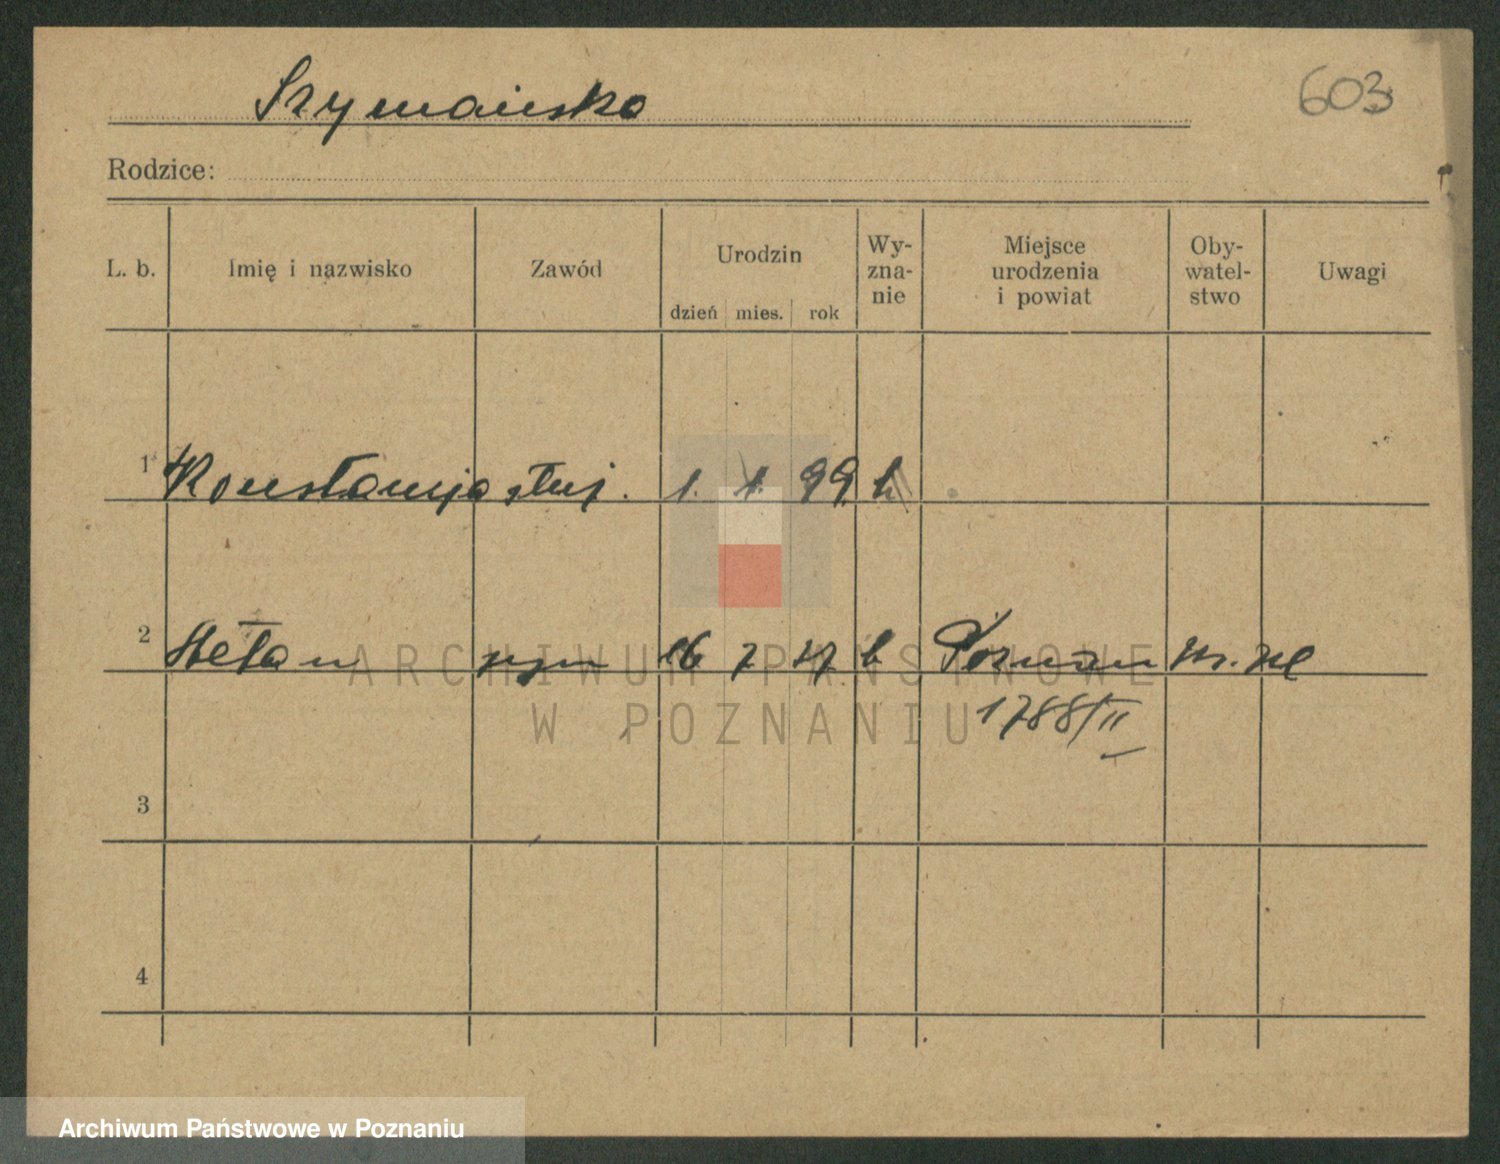 Szymańska
603
Rodzice:
L. b. Imię i nazwisko Zawód Urodzin dzień mies. rok Wy-zna-nie Miejsce urodzenia i powiat Oby-watel-stwo Uwagi
1 Konstancja służ. 1. 1. 99. k
2 Stefan syn 16 7 k Poznań
1788/II
3
4
ARCHIWUM PAŃSTWOWE
W POZNANIU
Archiwum Państwowe w Poznaniu